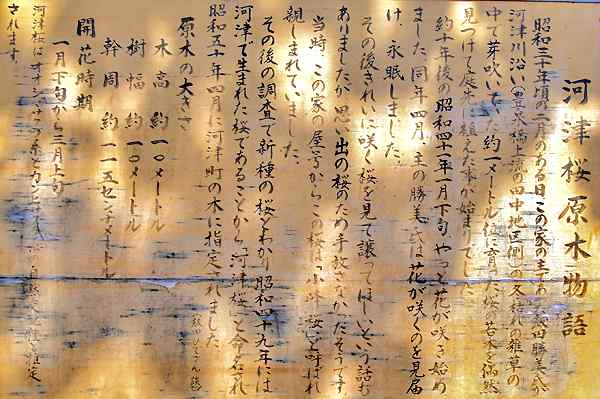 河津桜原木物語
昭和三十年頃の二月のある日この家の主
河津川沿い(豊泉橋上流の田中地区側)の冬枯れの雑草の
中で芽吹いていた約一メートル位に育った桜の苗木を偶然
見つけて庭先に植えた事が始まりでした。
約十年後の昭和四十一年一月下旬、やっと花が咲き始め
ました。同年四月、主の勝美氏は花が咲くのを見届
け、永眠しました。
その後きれいに咲く桜を見て譲ってほしいという話も
ありましたが、思い出の桜のため手放さなかったそうです
当時、この家の屋号からこの桜は「小峰桜」と呼ばれ
親しまれていました。
その後の調査で新種の桜とわかり、昭和四十九年には
河津で生まれた桜であることから「河津桜」と命名され
昭和五十年四月に河津町の木に指定されました。
原木の大きさ
木高 約一〇メートル
樹幅 約一〇メートル
幹周 約一一五センチメートル
開花時期
一月下旬から二月上旬
河津桜はオオシマザクラ系とカンヒザクラ 自然 推定
されます。